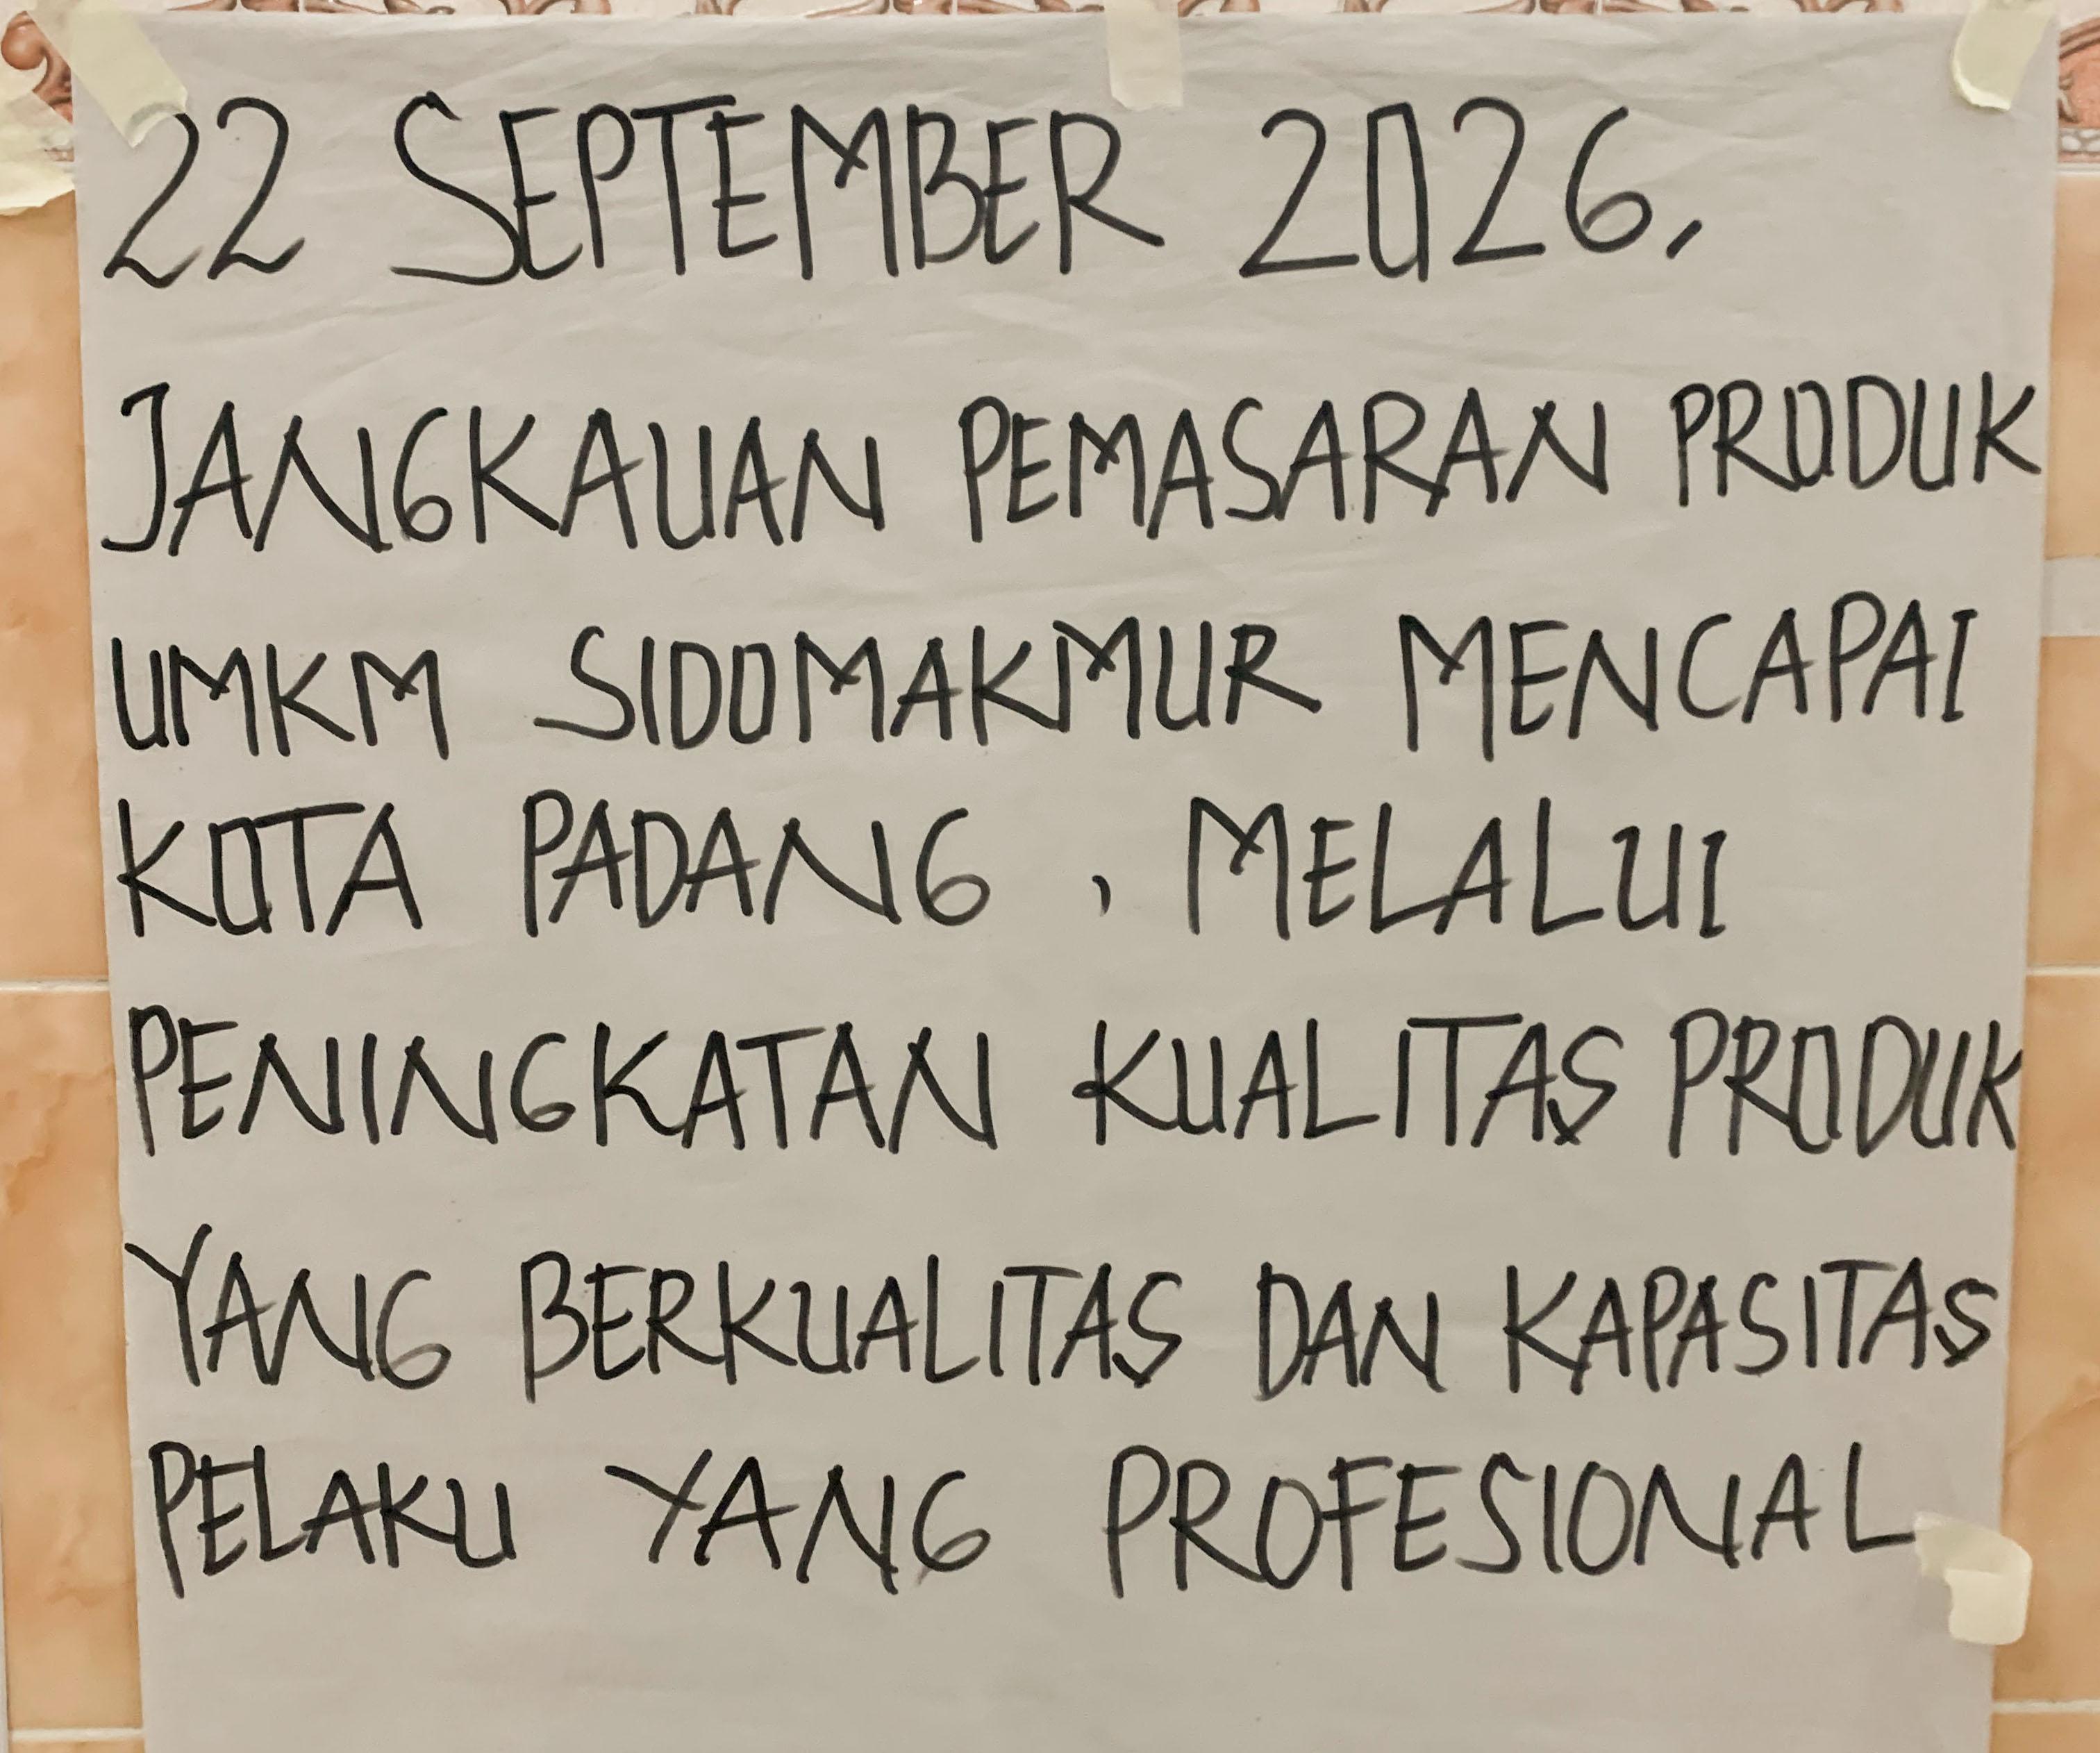 22 SEPTEMBER 2026,
JANGKAUAN PEMASARAN PRODUK
UMKM SIDOMAKMUR MENCAPAI
KOTA PADANG, MELALUI
PENINGKATAN KUALITAS PRODUK
YANG BERKUALITAS DAN KAPASITAS
PELAKU YANG PROFESIONAL